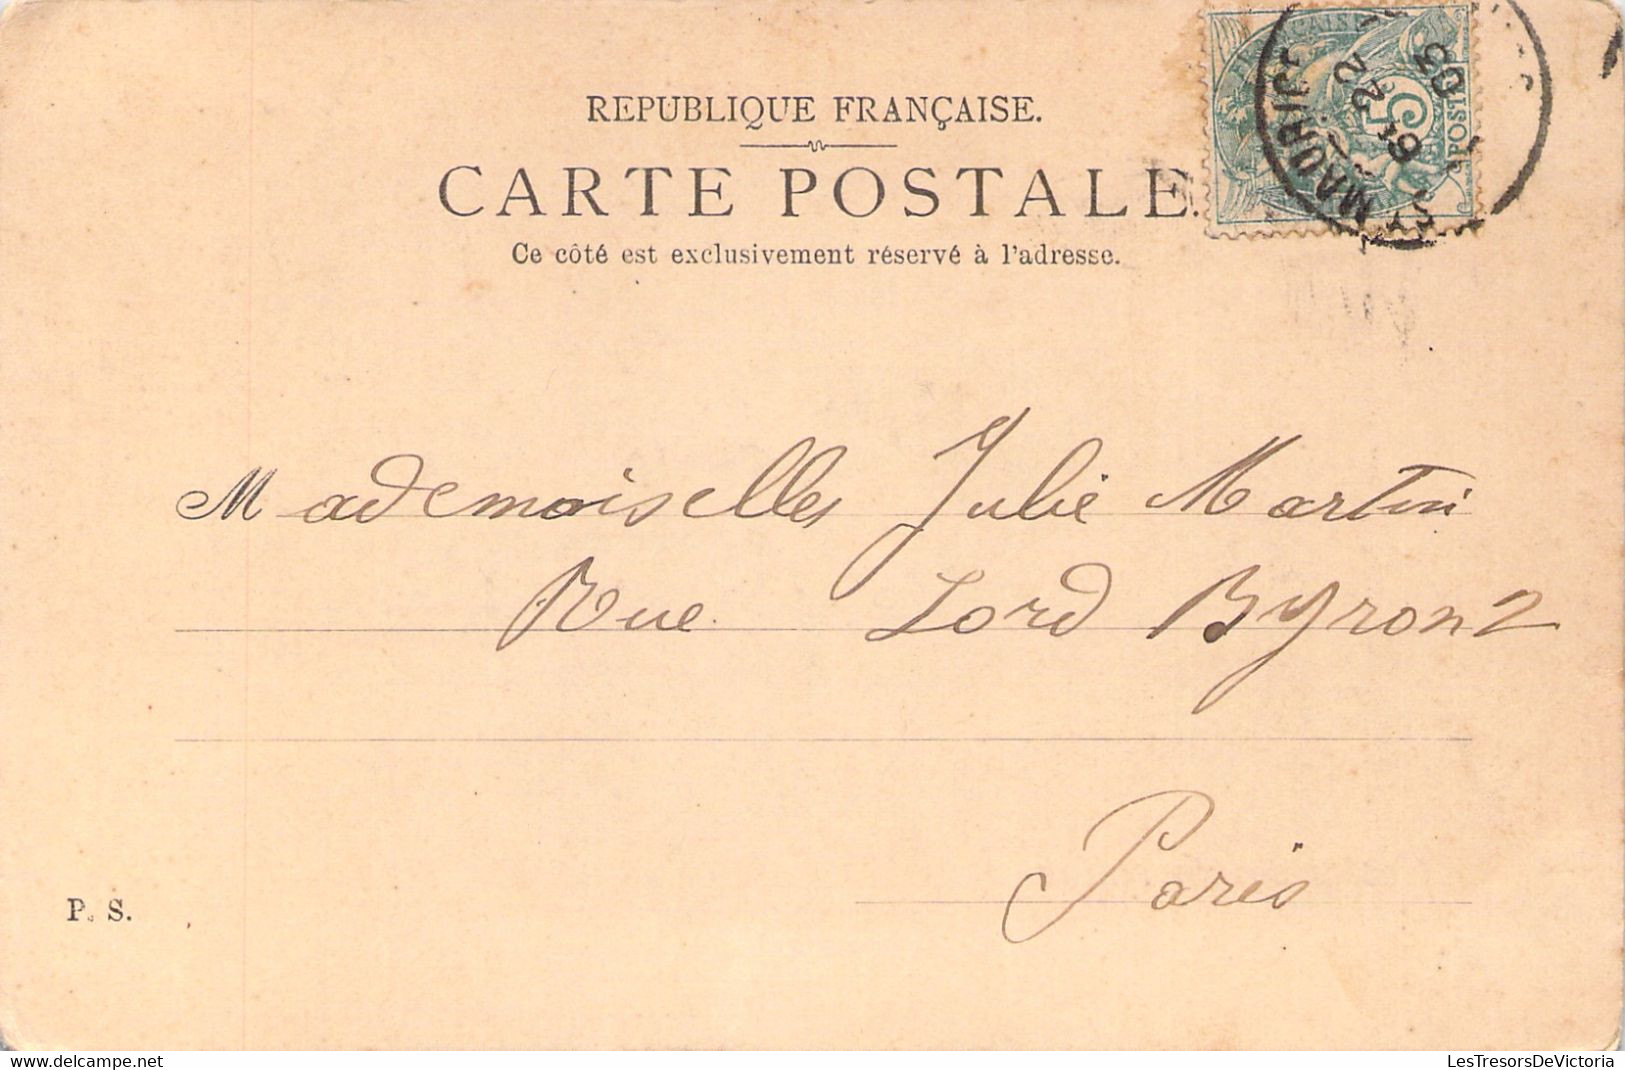 REPUBLIQUE FRANÇAISE.
CARTE POSTALE.
Ce côté est exclusivement réservé à l'adresse.
FRANÇAISE
5
POSTE
ST MAURICE
22
9
03
Mademoiselles Julie Martin
Rue Lord Byron 2
Paris
P. S.
LesTresorsDeVictoria